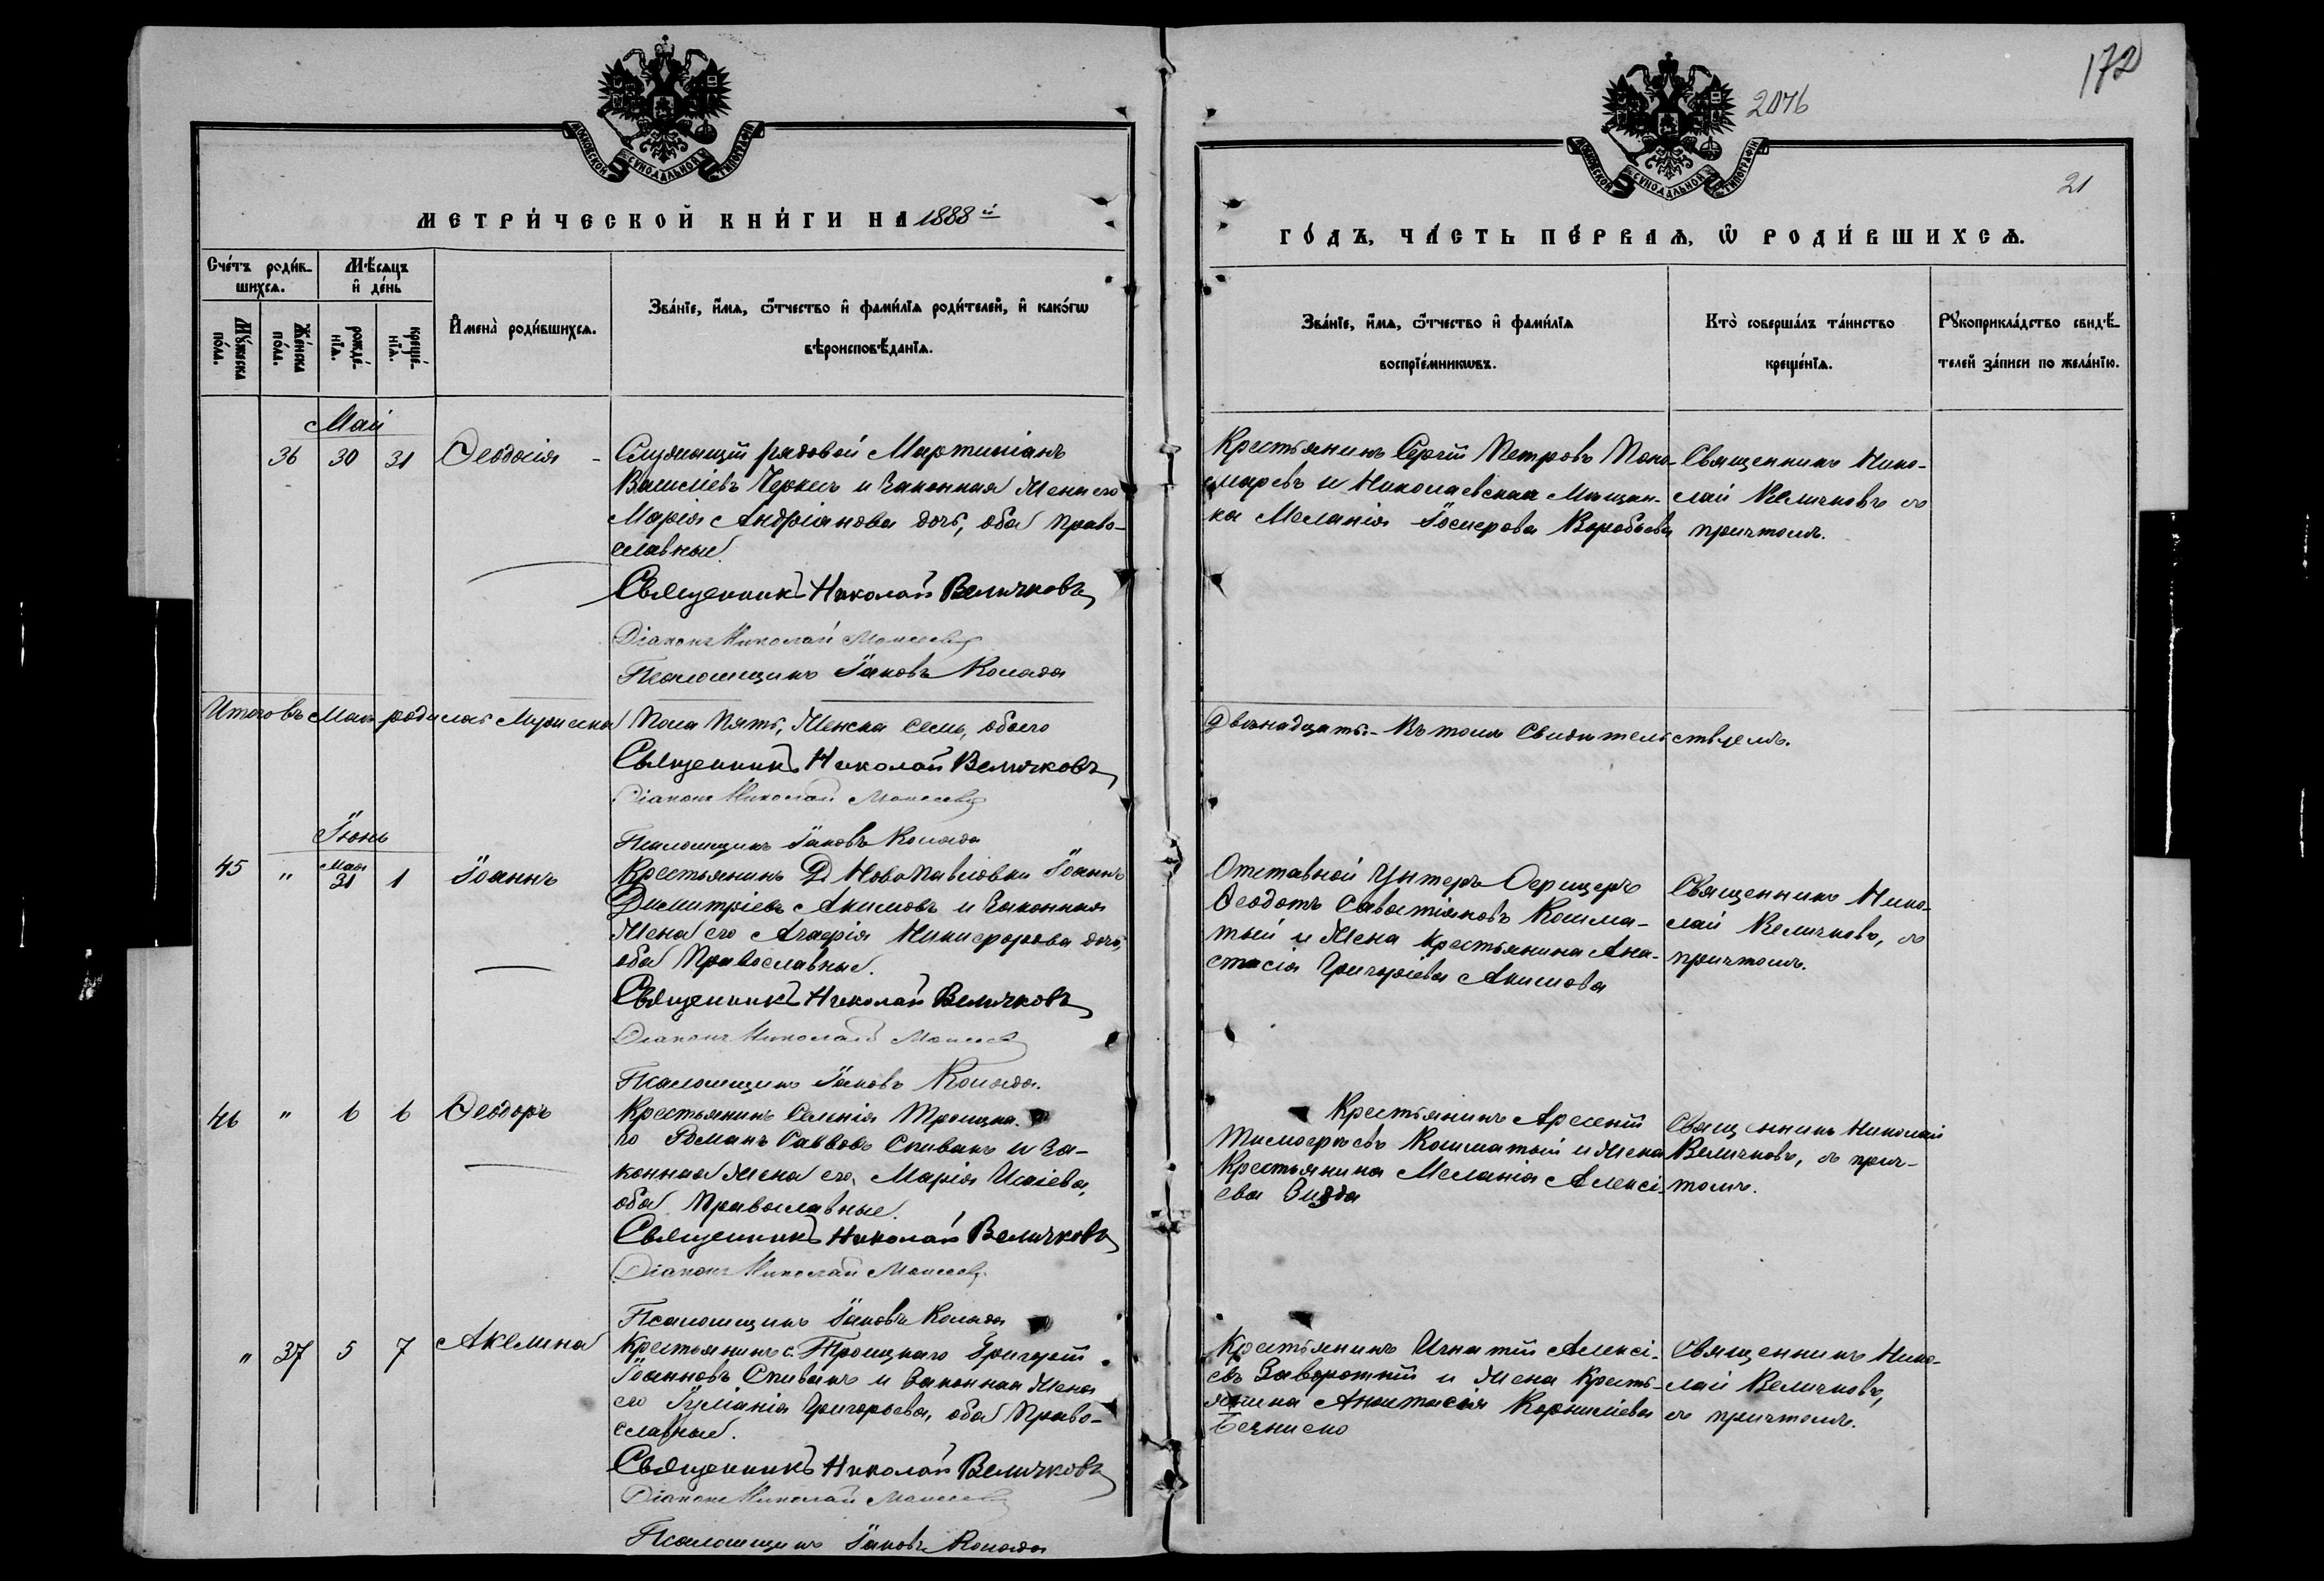 172
2076
21
МОСКОВСКОЙ СѴНОДАЛЬНОЙ ТИПОГРАФІИ
МОСКОВСКОЙ СѴНОДАЛЬНОЙ ТИПОГРАФІИ
МЕТРИ́ЧЕСКОЙ КНИ́ГИ НА 1888 й
ГО́ДЪ, ЧА́СТЬ ПЕ́РВАѦ, Ѡ҆ РОДИ́ВШИХСѦ.
Сче́тъ роди́в-
шихсѧ.
Мѣ́сѧцъ
и҆ де́нь
Мꙋ́жеска
по́ла.
Же́нска
по́ла.
рожде́-
нїѧ.
креще́-
нїѧ.
И҆мена̀ роди́вшихсѧ.
Зва́нїе, и҆́мѧ, ѻ҆́тчество и҆ фами́лїѧ роди́телей, и҆ како́гѡ
вѣроисповѣ́данїѧ.
Зва́нїе, и҆́мѧ, ѻ҆́тчество и҆ фами́лїѧ
воспрїе́мникѡвъ.
Кто̀ соверша́лъ та́инство
креще́нїѧ.
Рꙋкоприкла́дство свидѣ́-
телей за́писи по жела́нїю.
Май
36 30 31 Ѳеодосія -
Служащій рядовой Мартиніанъ
Василіевъ Черкес и законная жена его
Марія Андріанова дочь, оба право-
славные.
Священникъ Николай Величковъ
Діаконъ Николай Моисеевъ
Псаломщикъ Іаковъ Коляда
Крестьянинъ Сергій Петровъ Поно-
маревъ и Николаевская мещан-
ка Меланія Іосифова Воробьева
Священникъ Нико-
лай Величковъ съ
причтомъ.
Итого въ Маѣ родилось Мужеска пола пять, женска семь, обоего
двенадцать. Въ томъ свидительствуемъ.
Священникъ Николай Величковъ
Діаконъ Николай Моисеевъ
Псаломщикъ Іаковъ Коляда
Іюнь
45 " Мая 31 1 Іоаннъ
Крестьянинъ Д. Новопавловки Іоаннъ
Димитріевъ Акимовъ и законная
жена его Агафія Никифорова дочь,
оба Православные.
Священникъ Николай Величковъ
Діаконъ Николай Моисеевъ
Псаломщикъ Іаковъ Коляда.
Отставной Унтеръ Офицеръ
Ѳеодотъ Савостіяновъ Кошма-
тый и жена крестьянина Ана-
стасія Григоріева Акимова
Священникъ Нико-
лай Величковъ, съ
причтомъ.
46 " 6 6 Ѳеодоръ
Крестьянинъ Селенія Троицка-
го Романъ Саввовъ Спивакъ и за-
конная жена его, Марія Исаіева,
оба Православные.
Священникъ Николай Величковъ
Діаконъ Николай Моисеевъ
Псаломщикъ Іаковъ Коляда
Крестьянинъ Арсеній
Тимофеевъ Кошматый и жена
Крестьянина Меланія Алексі-
ева
Священникъ Николай
Величковъ, съ прич-
томъ.
" 37 5 7 Акелина
Крестьянинъ с. Троицкаго Григорій
Іоанновъ Спивакъ и законная жена
его Іуліанія Григорьева, оба Право-
славные.
Священникъ Николай Величковъ
Діаконъ Николай Моисеевъ
Псаломщикъ Іаковъ Коляда
Крестьянинъ Игнатій Алексі-
евъ Заворотній и жена Кресть-
янина Анастасія Корниліева
Священникъ Нико-
лай Величковъ,
съ причтомъ.